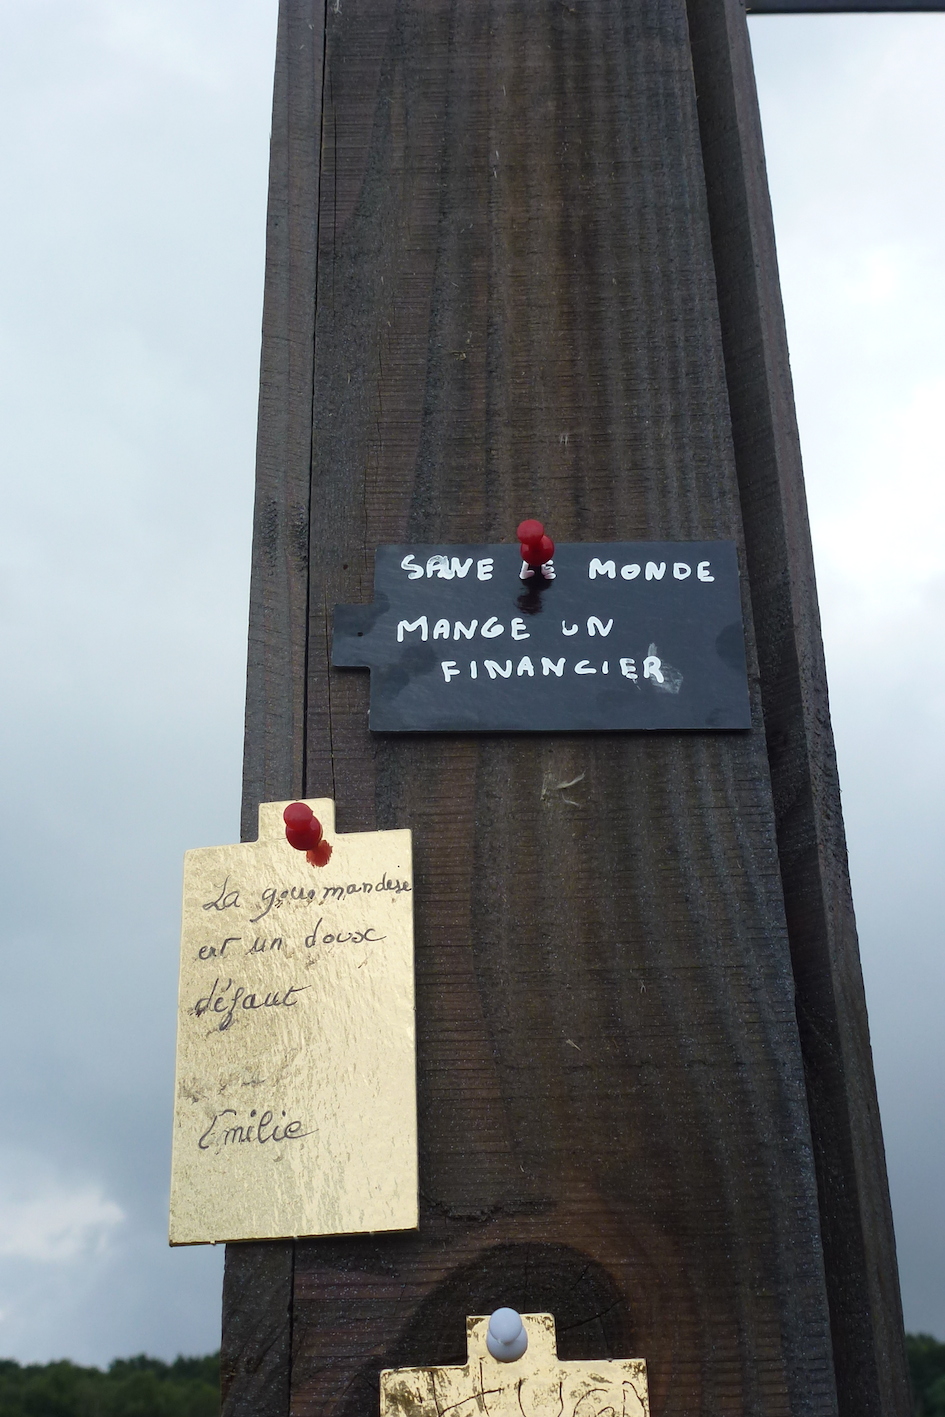 SAVE LE MONDE
MANGE UN
FINANCIER
La gourmandise
est un doux
défaut
Emilie